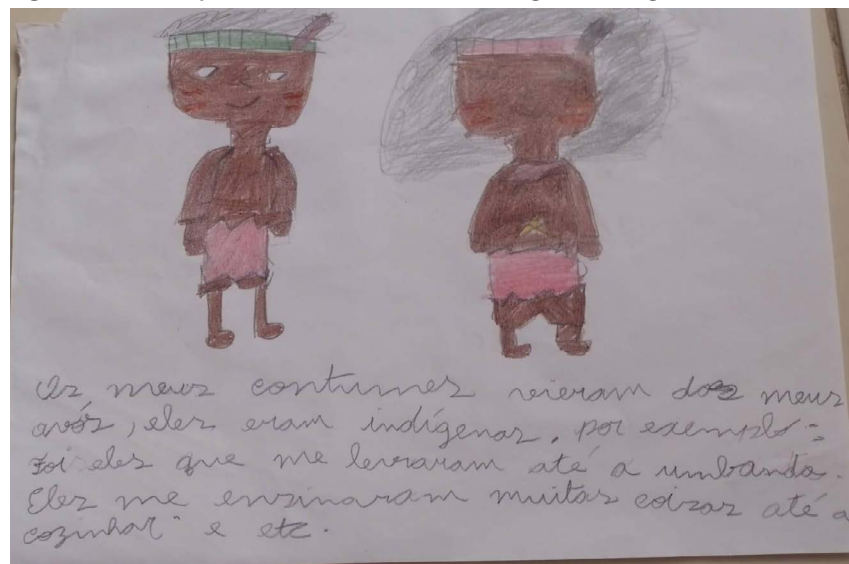 Os meus contumes vieram dos meus
avós, eles eram indígenas, por exemplo:
Foi eles que me levaram até a umbanda.
Eles me ensinaram muitas coizas até a
cozinhar" e etc.